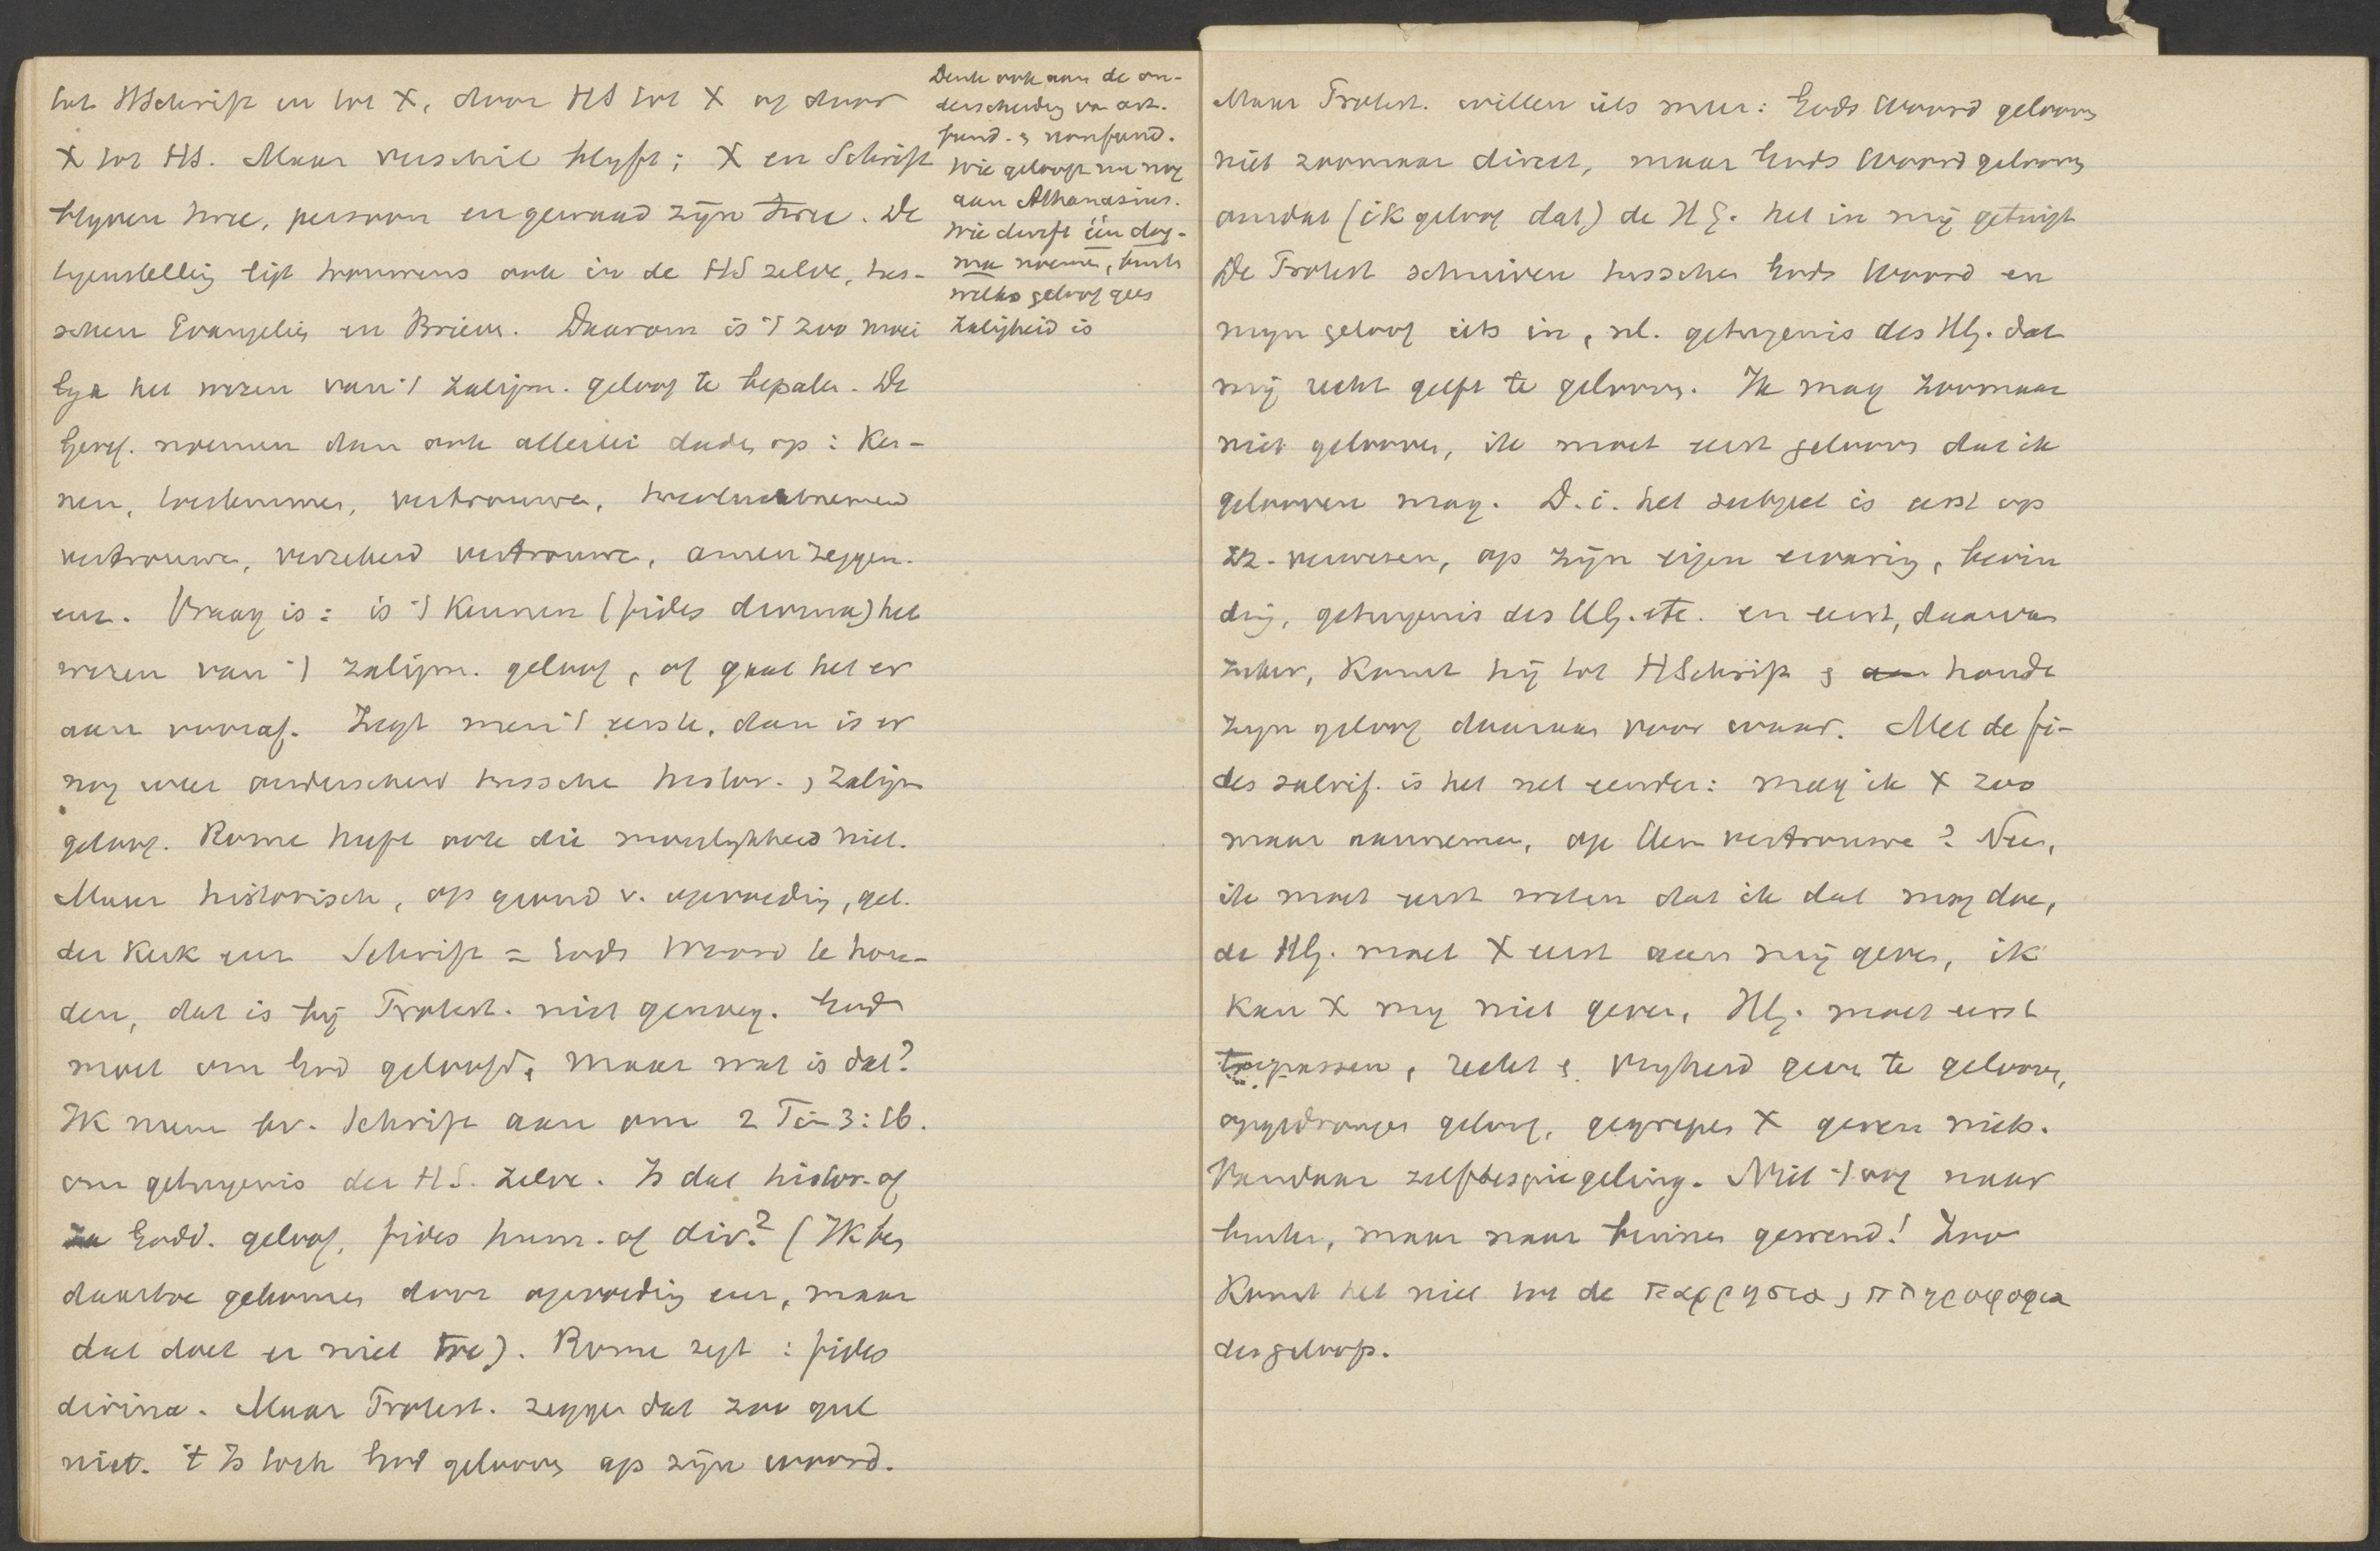 tot HSchrift en tot X, door HS tot X of door
X tot HS. Maar verschil blyft; X en Schrift
blyven twee, persoon en gewaad zijn twee. De
tegenstelling ligt trouwens ook in de HS zelve, tus-
schen Evangeliën en Brieven. Daarom is 't zoo moei
lyk het wezen van 't zaligm. geloof te bepalen. De
Geref. noemen dan ook allerlei daden op: Ken-
nen, toestemmen, vertrouwen, toevluchtnemend
vertrouwen, verzekerd vertrouwen, amen zeggen.
enz. Vraag is: is 't Kennen (fides divina) het
wezen van 't zaligm. geloof, of gaat het er
aan vooraf. Zegt men 't eerste, dan is er
nog weer onderscheid tusschen histor. & zaligm
geloof. Rome heeft ook die moeilykheid niet.
Maar historisch, op grond v. opvoeding, get.
der Kerk enz Schrift = Gods Woord te hou-
den, dat is bij Protest. niet genoeg. God
moet om God geloofd, maar wat is dat?
IK neem bv. Schrift aan om 2 Tim 3:16.
om getuigenis der H.S. zelve. Is dat histor. of
Godd. geloof, fides hum. of div.? (IK ben
daartoe gekomen door opvoeding enz, maar
dat doet er niet toe). Rome zegt: fides
divina. Maar Protest. zeggen dat zoo gul
niet. 't Is toch God gelooven op zijn woord.
Denk ook aan de on-
derscheiding van art.
fund. & nonfund.
Wie gelooft nu nog
aan Athanasius.
Wie durft één dog-
ma noemen, buiten
welks geloof geen
Zaligheid is
Maar Protest. willen iets meer: Gods Woord gelooven
niet zoomaar direct, maar Gods Woord gelooven
omdat (ik geloof dat) de HG. het in mij getuigt
De Protest schuiven tusschen Gods Woord en
myn geloof iets in, nl. getuigenis des HG. dat
mij recht geeft te gelooven. Ik mag zoomaar
niet gelooven, ik moet eerst gelooven dat ik
gelooven mag. D.i. het subject is eerst op
zz. verwezen, op zijn eigen ervaring, bevin
ding, getuigenis des HG. etc. en eerst, daarvan
zeker, Komt hij tot HSchrift & houdt
zyn geloof daaraan voor waar. Met de fi-
des salvif. is het net eender: mag ik X zoo
maar aannemen, op Hem vertrouwen? Neen,
ik moet eerst weten dat ik dat mag doen,
de HG. moet X eerst aan mij geven, ik
Kan X my niet geven, HG. moet eerst
toepassen, recht & vryheid geven te gelooven,
opgedrongen geloof, gegrepen X geven niets.
Vandaar zelfbespiegeling. Niet 't oog naar
buiten, maar naar binnen gewend! Zoo
Komt het niet tot de παρρησια & πληροφορια
des geloofs.